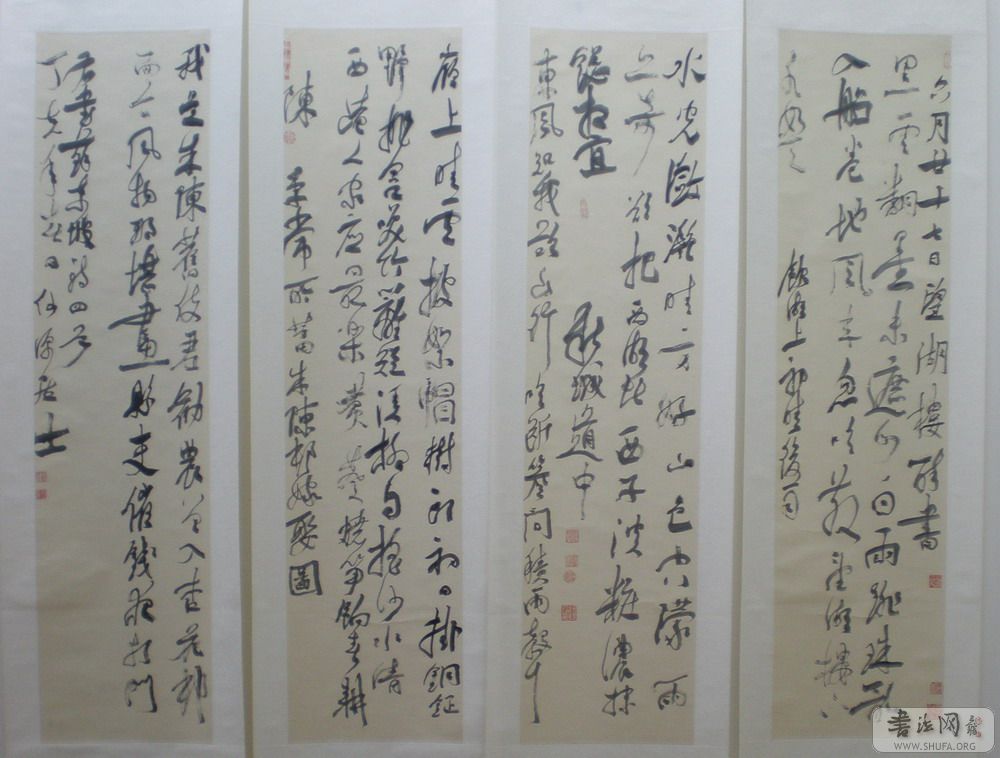 六月廿十七日望湖樓醉書
黑雲翻墨未遮山白雨跳珠亂
入船卷地風来忽吹散望湖樓下
水如天 飲湖上初晴後雨
水光瀲灩晴方好山色空濛雨
亦奇欲把西湖比西子淡粧濃抹
總相宜 新城道中
東風知我欲山行吹斷簷間積雨聲
嶺上晴雲披絮帽樹頭初日掛銅鉦
野桃含笑竹籬短溪柳自搖沙水清
西崦人家應最樂煮葵燒筍餉春耕
陳季常所蓄朱陳村嫁娶圖
我是朱陳舊使君勸農曾入杏花村
而今風物那堪畫縣吏催錢夜打門
右書蘇東坡詩四首
丁亥年 日 居士
書法网
WWW.SHUFA.ORG